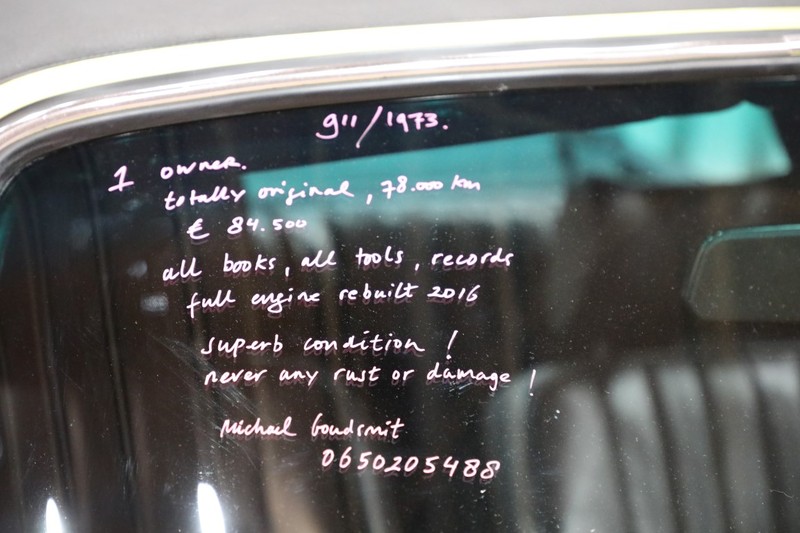 911/1973.
1 owner.
totally original, 78.000 km
€ 84.500
all books, all tools, records
full engine rebuilt 2016
superb condition!
never any rust or damage!
Michael Goudsmit
0650205488